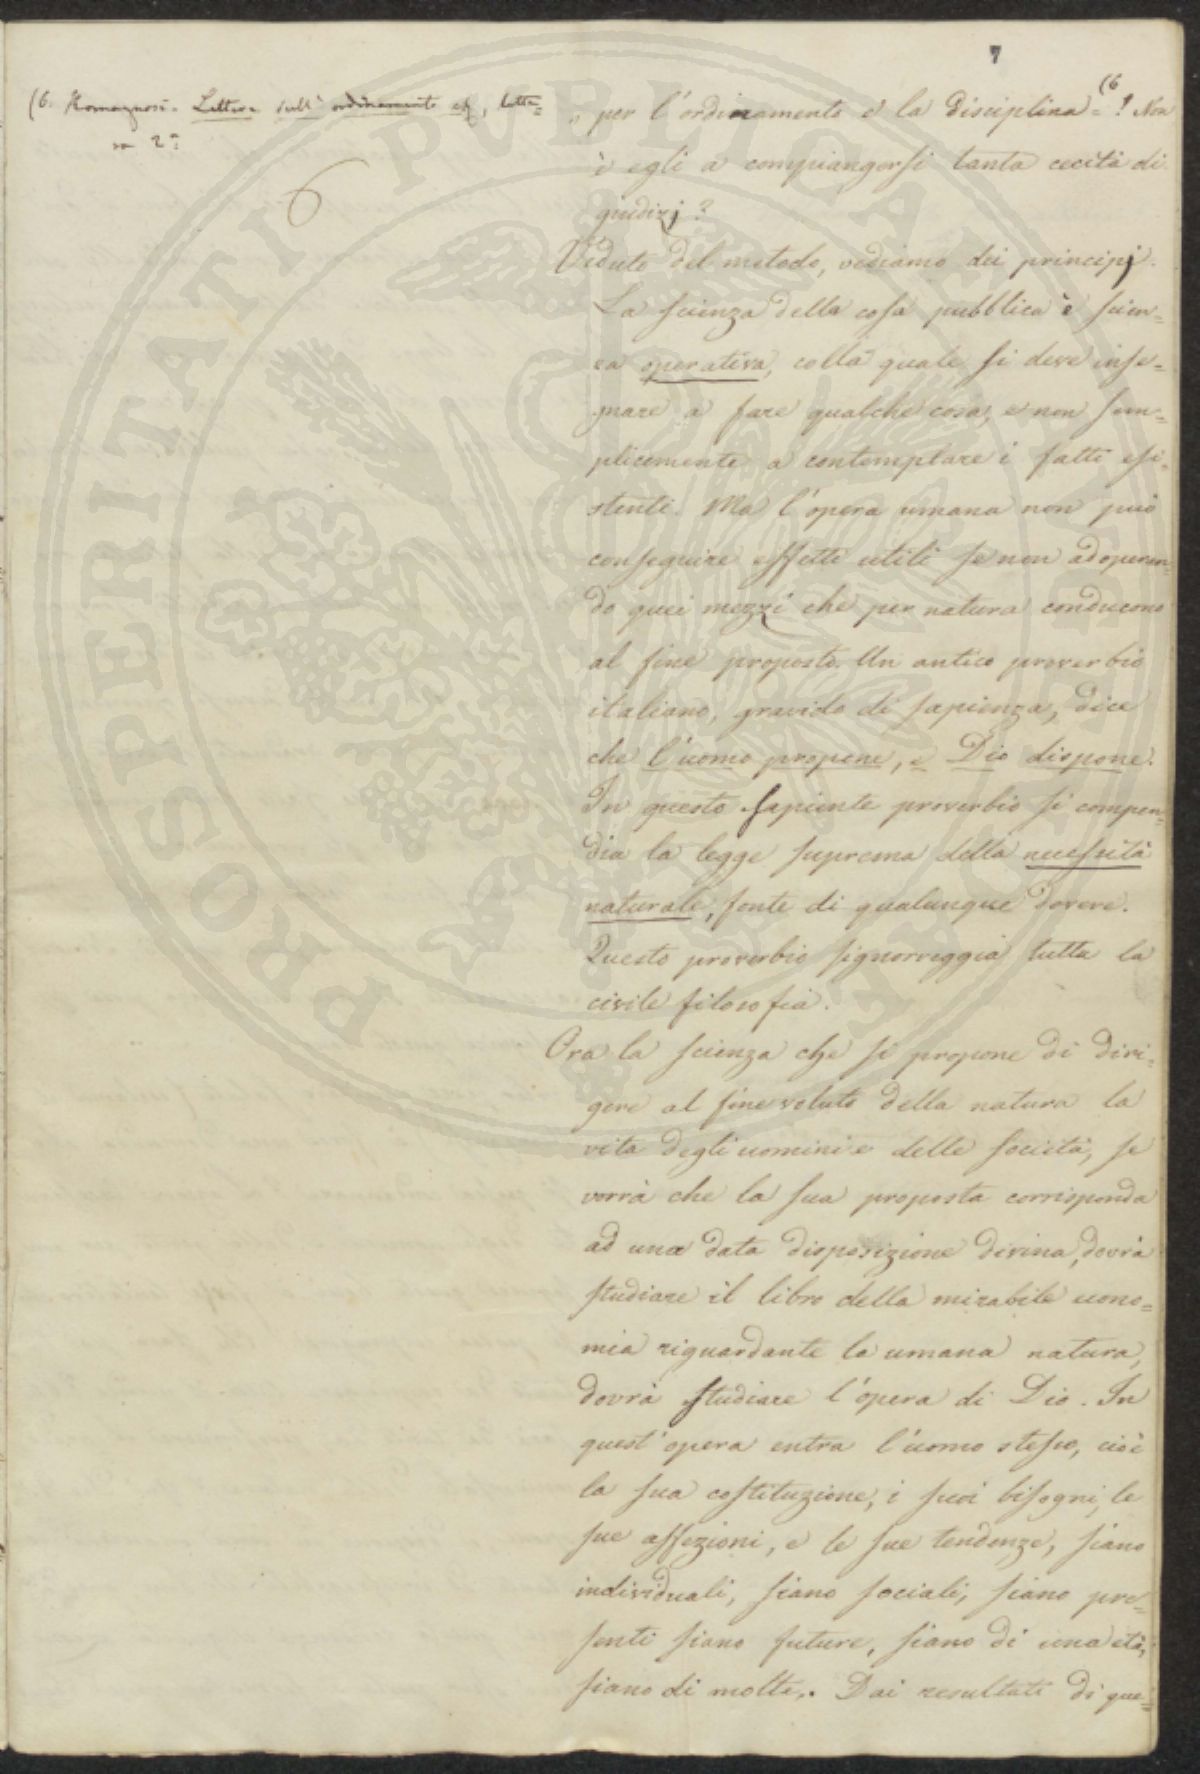 7
(6. Romagnosi. Lettere sull'ordinamento ecc, lette=
ra 2ª
6
„ per l'ordinamento e la disciplina=(6! Non
è egli a compiangersi tanta cecità di
giudizj?
Veduto del metodo, vediamo dei principj.
La scienza della cosa pubblica è scien=
za operativa, colla quale si deve inse=
gnare a fare qualche cosa, e non sem=
plicemente a contemplare i fatti esi=
stenti. Ma l'opera umana non può
conseguire effetti utili se non adoperan=
do quei mezzi che per natura conducono
al fine proposto. Un antico proverbio
italiano, gravido di sapienza, dice
che l'uomo propone, e Dio dispone.
In questo sapiente proverbio si compen=
dia la legge suprema della necessità
naturale, fonte di qualunque dovere.
Questo proverbio signorreggia tutta la
civile filosofia.
Ora la scienza che si propone di diri=
gere al fine voluto della natura la
vita degli uomini e delle società, se
vorrà che la sua proposta corrisponda
ad una data disposizione divina, dovrà
studiare il libro della mirabile econo=
mia riguardante la umana natura,
dovrà studiare l'opera di Dio. In
quest'opera entra l'uomo stesso, cioè
la sua costituzione, i suoi bisogni, le
sue affezioni, e le sue tendenze, siano
individuali, siano sociali, siano pre=
senti siano future, siano di una età,
siano di molte. Dai resultati di que=
PROSPERITATI PUBLICAE